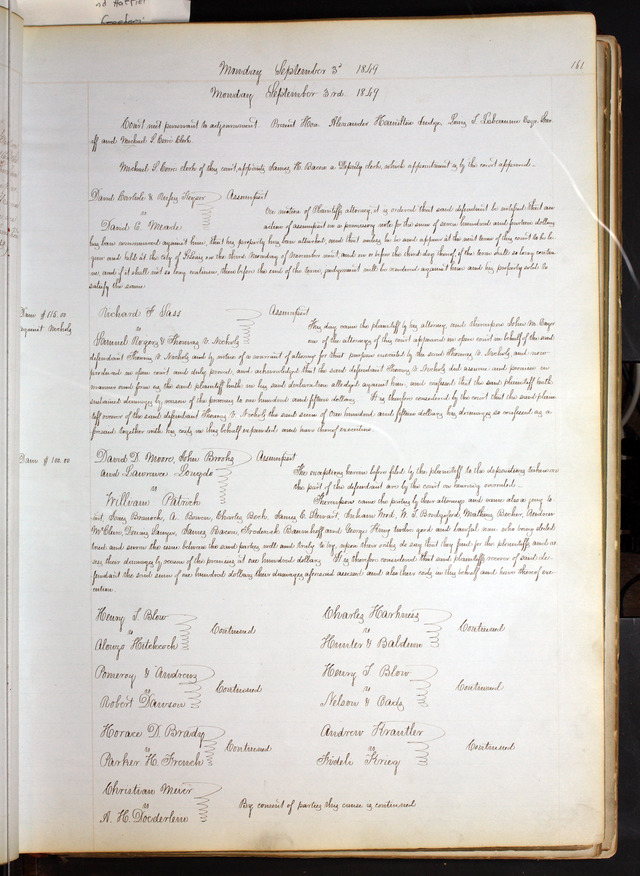 nd Harriel
161
Monday September 3d 1849
Monday September 3rd 1849
Court met pursuant to adjournment Present Hon Alexander Hamilton Judge, Louis T. Labeaume Esqr. Sher
iff and Michael S. Cerre Clerk
Michael S. Cerre clerk of this court appoints James H. Bacon a Deputy clerk, which appointment is by the court approved
David Carlisle & Keyser Assumpsit
vs
David C. Meade
On motion of Plaintiffs attorney, it is ordered that said defendant be notified that an
action of assumpsit on a promissory note for the sum of seven hundred and fourteen dollars
has been commenced against him, that his property has been attached, and that unless he be and appear at the next term of this court to be be
gun and held at the City of St Louis on the third Monday of November next, and on or before the third day thereof, if the term shall so long contin
ue, and if it shall not so long continue, then before the end of the term, judgment will be rendered against him and his property sold to
satisfy the same
Dam $115.00
against Nichols
Richard F Sass Assumpsit
vs
Samuel Rogers & Thomas V Nichols
This day came the plaintiff by his attorney and thereupon John M.
one of the attorneys of this court appeared in open court on behalf of the said
defendant Thomas V. Nichols and by virtue of a warrant of attorney for that purpose executed by the said Thomas V. Nichols, and now
produced in open court and duly proved, and acknowledged that the said defendant Thomas V. Nichols did assume and promise in
manner and form as the said plaintiff hath in his said declaration alledged against him, and confessed that the said plaintiff hath
sustained damages by reason of the premises to one hundred and fifteen dollars It is therefore considered by the court that the said plain
tiff recover of the said defendant Thomas V. Nichols the said sum of one hundred and fifteen dollars his damages so confessed as a
foresaid together with his costs in this behalf expended and have thereof execution.
Dam $100.00
David D. Moore, John Brooks Assumpsit
and Lawrence Longdo
vs
William Patrick
The exceptions herein before filed by the plaintiff to the depositions taken on
the part of the defendant are by the court on hearing overruled
Thereupon came the parties by their attorneys and came also a jury to
wit Jones Branock, A. Bowen, Charles Bock, James C. Stewart, Ford, W. S. Bridgeford, Mathias Becker, Andrew
McClain, Dennis Sawyer, James Bacon, Frederick Baumhoff and George King twelve good and lawful men who being elected
tried and sworn the issue between the said parties well and truly to try, upon their oaths do say that they find for the plaintiffs, and as
sess their damages by reason of the premises at one hundred dollars It is therefore considered that said plaintiffs recover of said de-
fendant the said sum of one hundred dollars their damages aforesaid assessed and also their costs in this behalf and have thereof exe-
cution
Henry T. Blow
vs Continued
Alonzo Hitchcock
Charles Harkness
vs Continued
Hunter & Baldwin
Pomeroy & Andrews
vs Continued
Robert Dawson
Henry T. Blow
vs Continued
Nelson & Eads
Horace D. Brady
vs Continued
Parker H. French
Andrew Krautler
vs Continued
Fidele Krieg
Christian Meier
vs By consent of parties this cause is continued
A. H. Doederlein